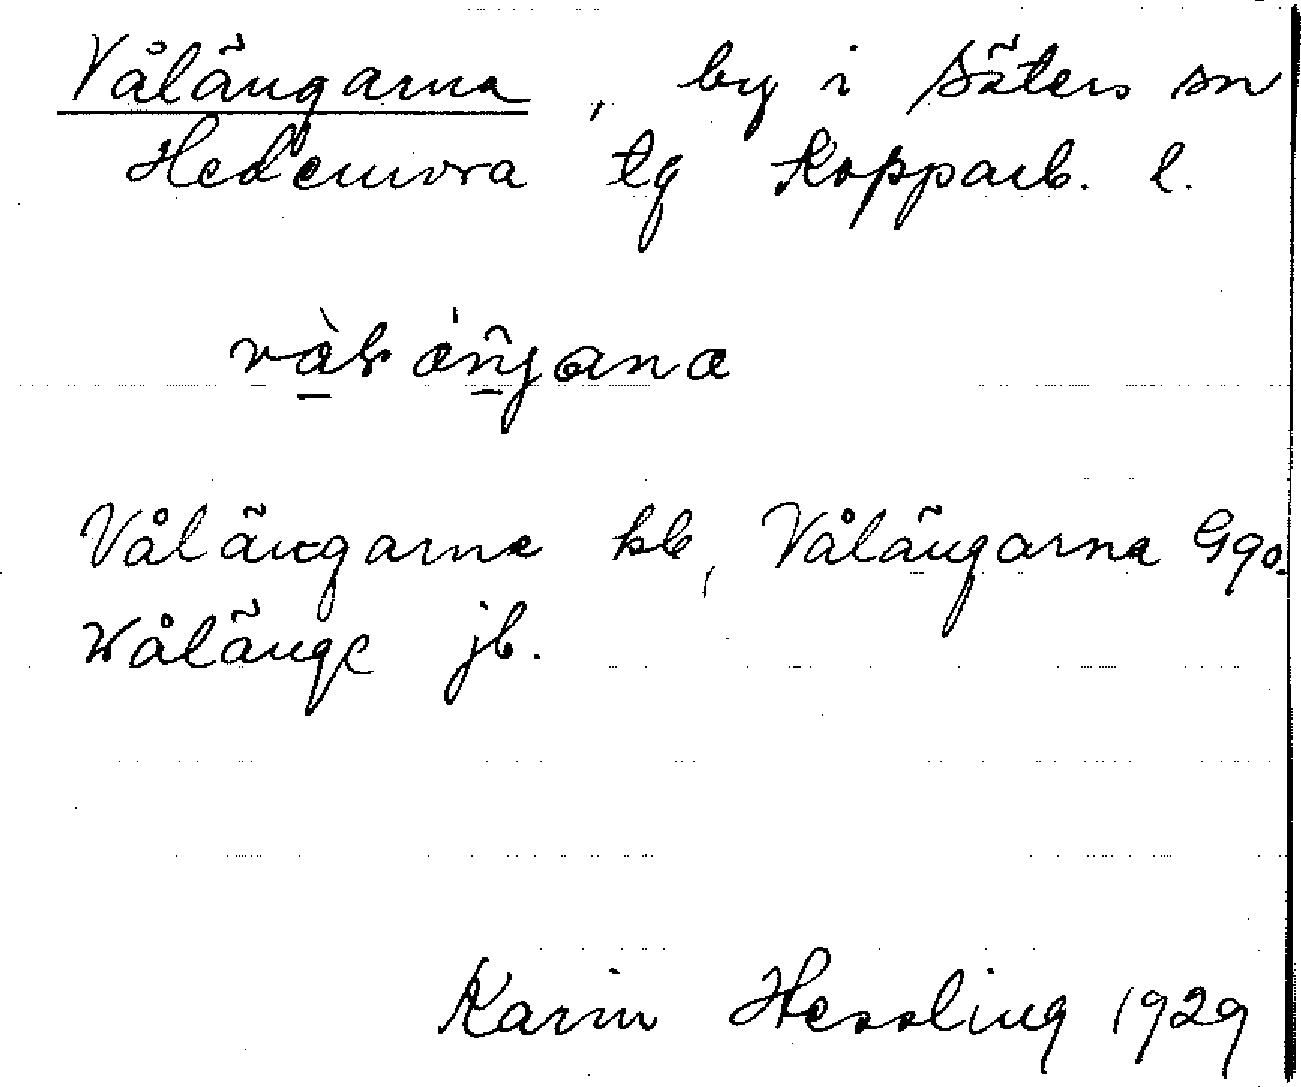 Vålängarna, by i Säters sn
Hedemora tg Kopparb. l.
Vålängarne kb, Vålängarna Ggo.
Wålänge jb.
Karin Hessling 1929